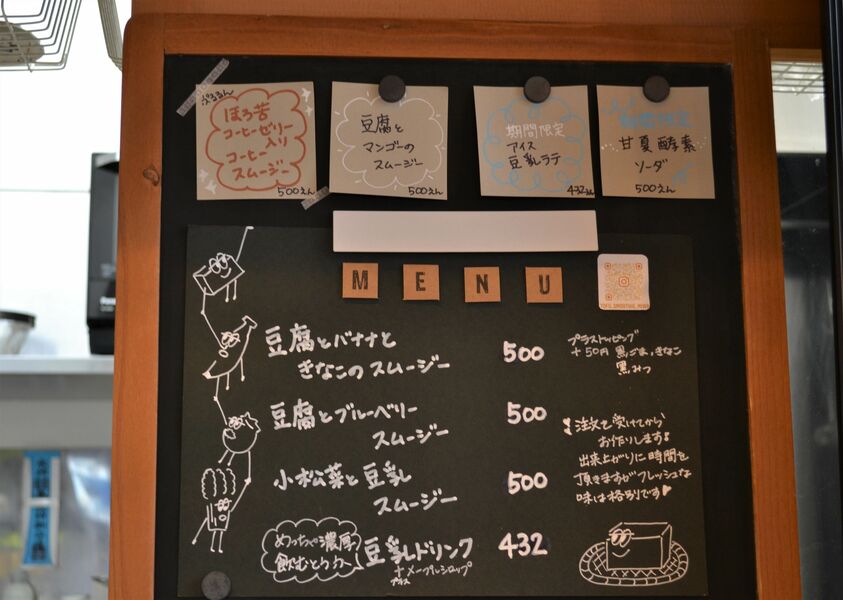 ぷるるん
ほろ苦
コーヒーゼリー
入り
コーヒー
スムージー
500えん
豆腐と
マンゴーの
スムージー
500えん
期間限定
アイス
豆乳ラテ
432えん
期間限定
甘夏酵素
ソーダ
500えん
MENU
豆腐とバナナと
きなこのスムージー 500
プラストッピング
+50円 黒ごま、きなこ
黒みつ
豆腐とブルーベリー
スムージー 500
小松菜と豆乳
スムージー 500
注文を受けてから
お作りします!
出来上がりに時間を
頂きますがフレッシュな
味は格別です
めっちゃ濃厚
飲むとうふ
豆乳ドリンク 432
+メープルシロップ
プラス